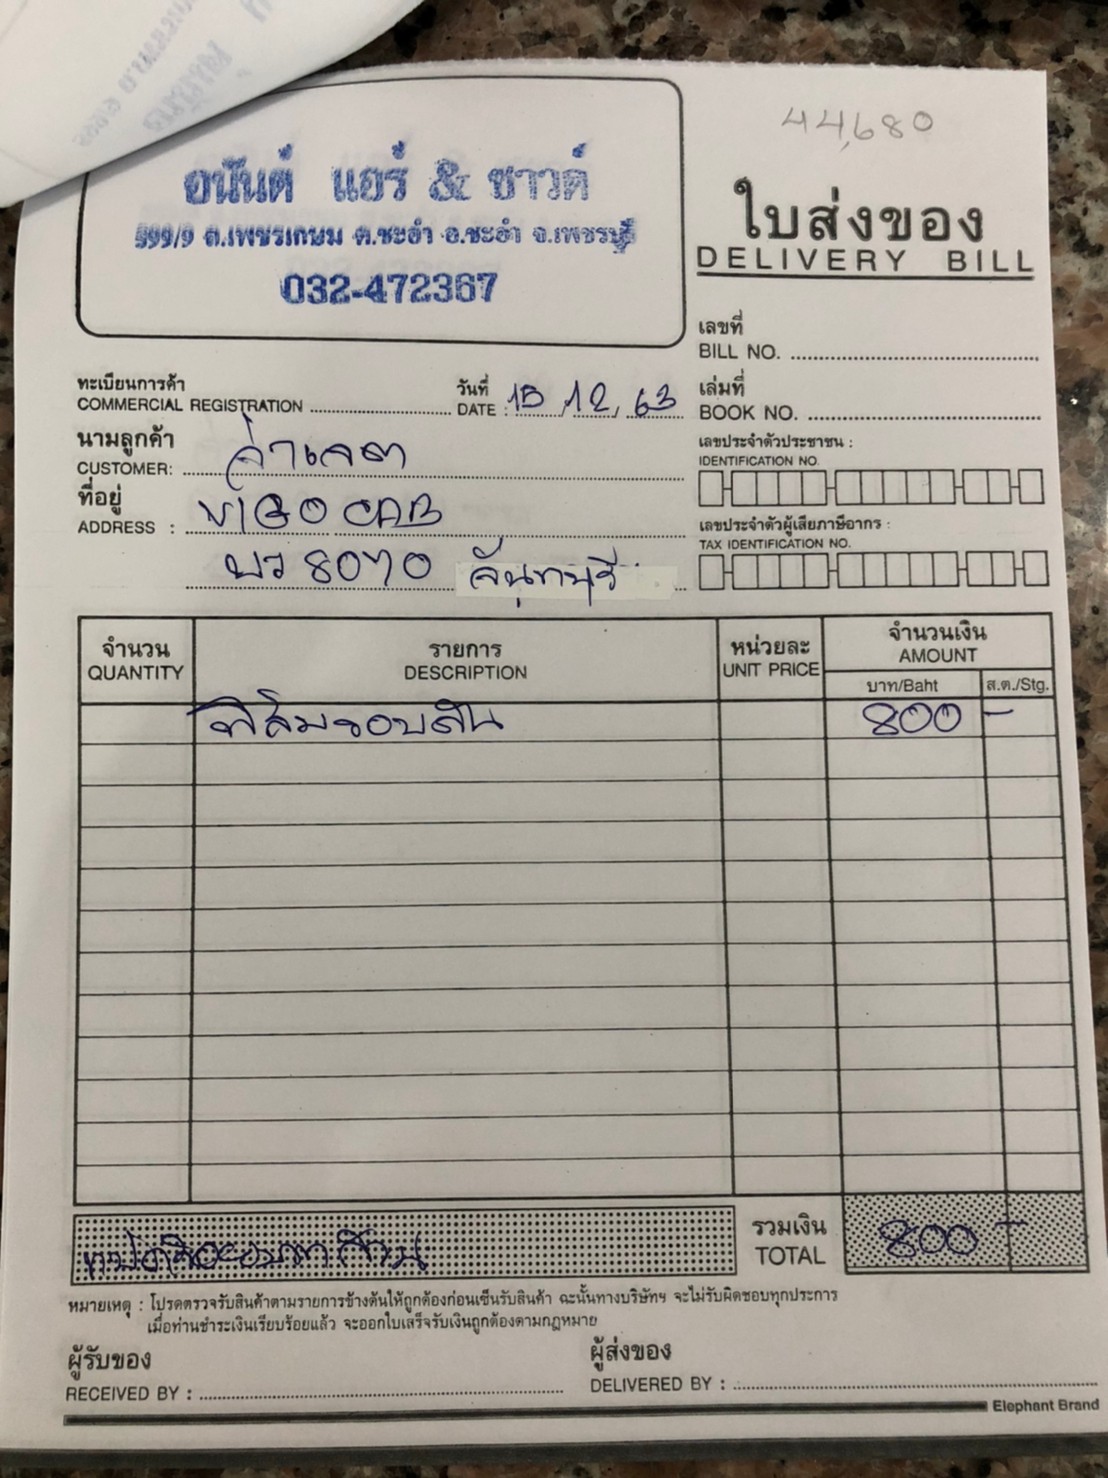 44,680
อนันต์ แอร์ & ซาวด์
599/9 ถ.เพชรเกษม ต.ชะอำ อ.ชะอำ จ.เพชรบุรี
032-472367
ใบส่งของ
DELIVERY BILL
เลขที่
BILL NO.
ทะเบียนการค้า
COMMERCIAL REGISTRATION
วันที่
DATE : 15, 12, 63
เล่มที่
BOOK NO.
นามลูกค้า
CUSTOMER:
เลขประจำตัวประชาชน :
IDENTIFICATION NO.
ที่อยู่
ADDRESS : VIGO CAB
บว 8070 จันทบุรี
เลขประจำตัวผู้เสียภาษีอากร :
TAX IDENTIFICATION NO.
จำนวน รายการ หน่วยละ จำนวนเงิน
QUANTITY DESCRIPTION UNIT PRICE AMOUNT
บาท/Baht ส.ต./Stg.
ฟิล์มรอบคัน 800 -
แปดร้อยบาทถ้วน
รวมเงิน
TOTAL 800 -
หมายเหตุ : โปรดตรวจรับสินค้าตามรายการข้างต้นให้ถูกต้องก่อนเซ็นรับสินค้า ฉะนั้นทางบริษัทฯ จะไม่รับผิดชอบทุกประการ
เมื่อท่านชำระเงินเรียบร้อยแล้ว จะออกใบเสร็จรับเงินถูกต้องตามกฎหมาย
ผู้รับของ
RECEIVED BY :
ผู้ส่งของ
DELIVERED BY :
Elephant Brand